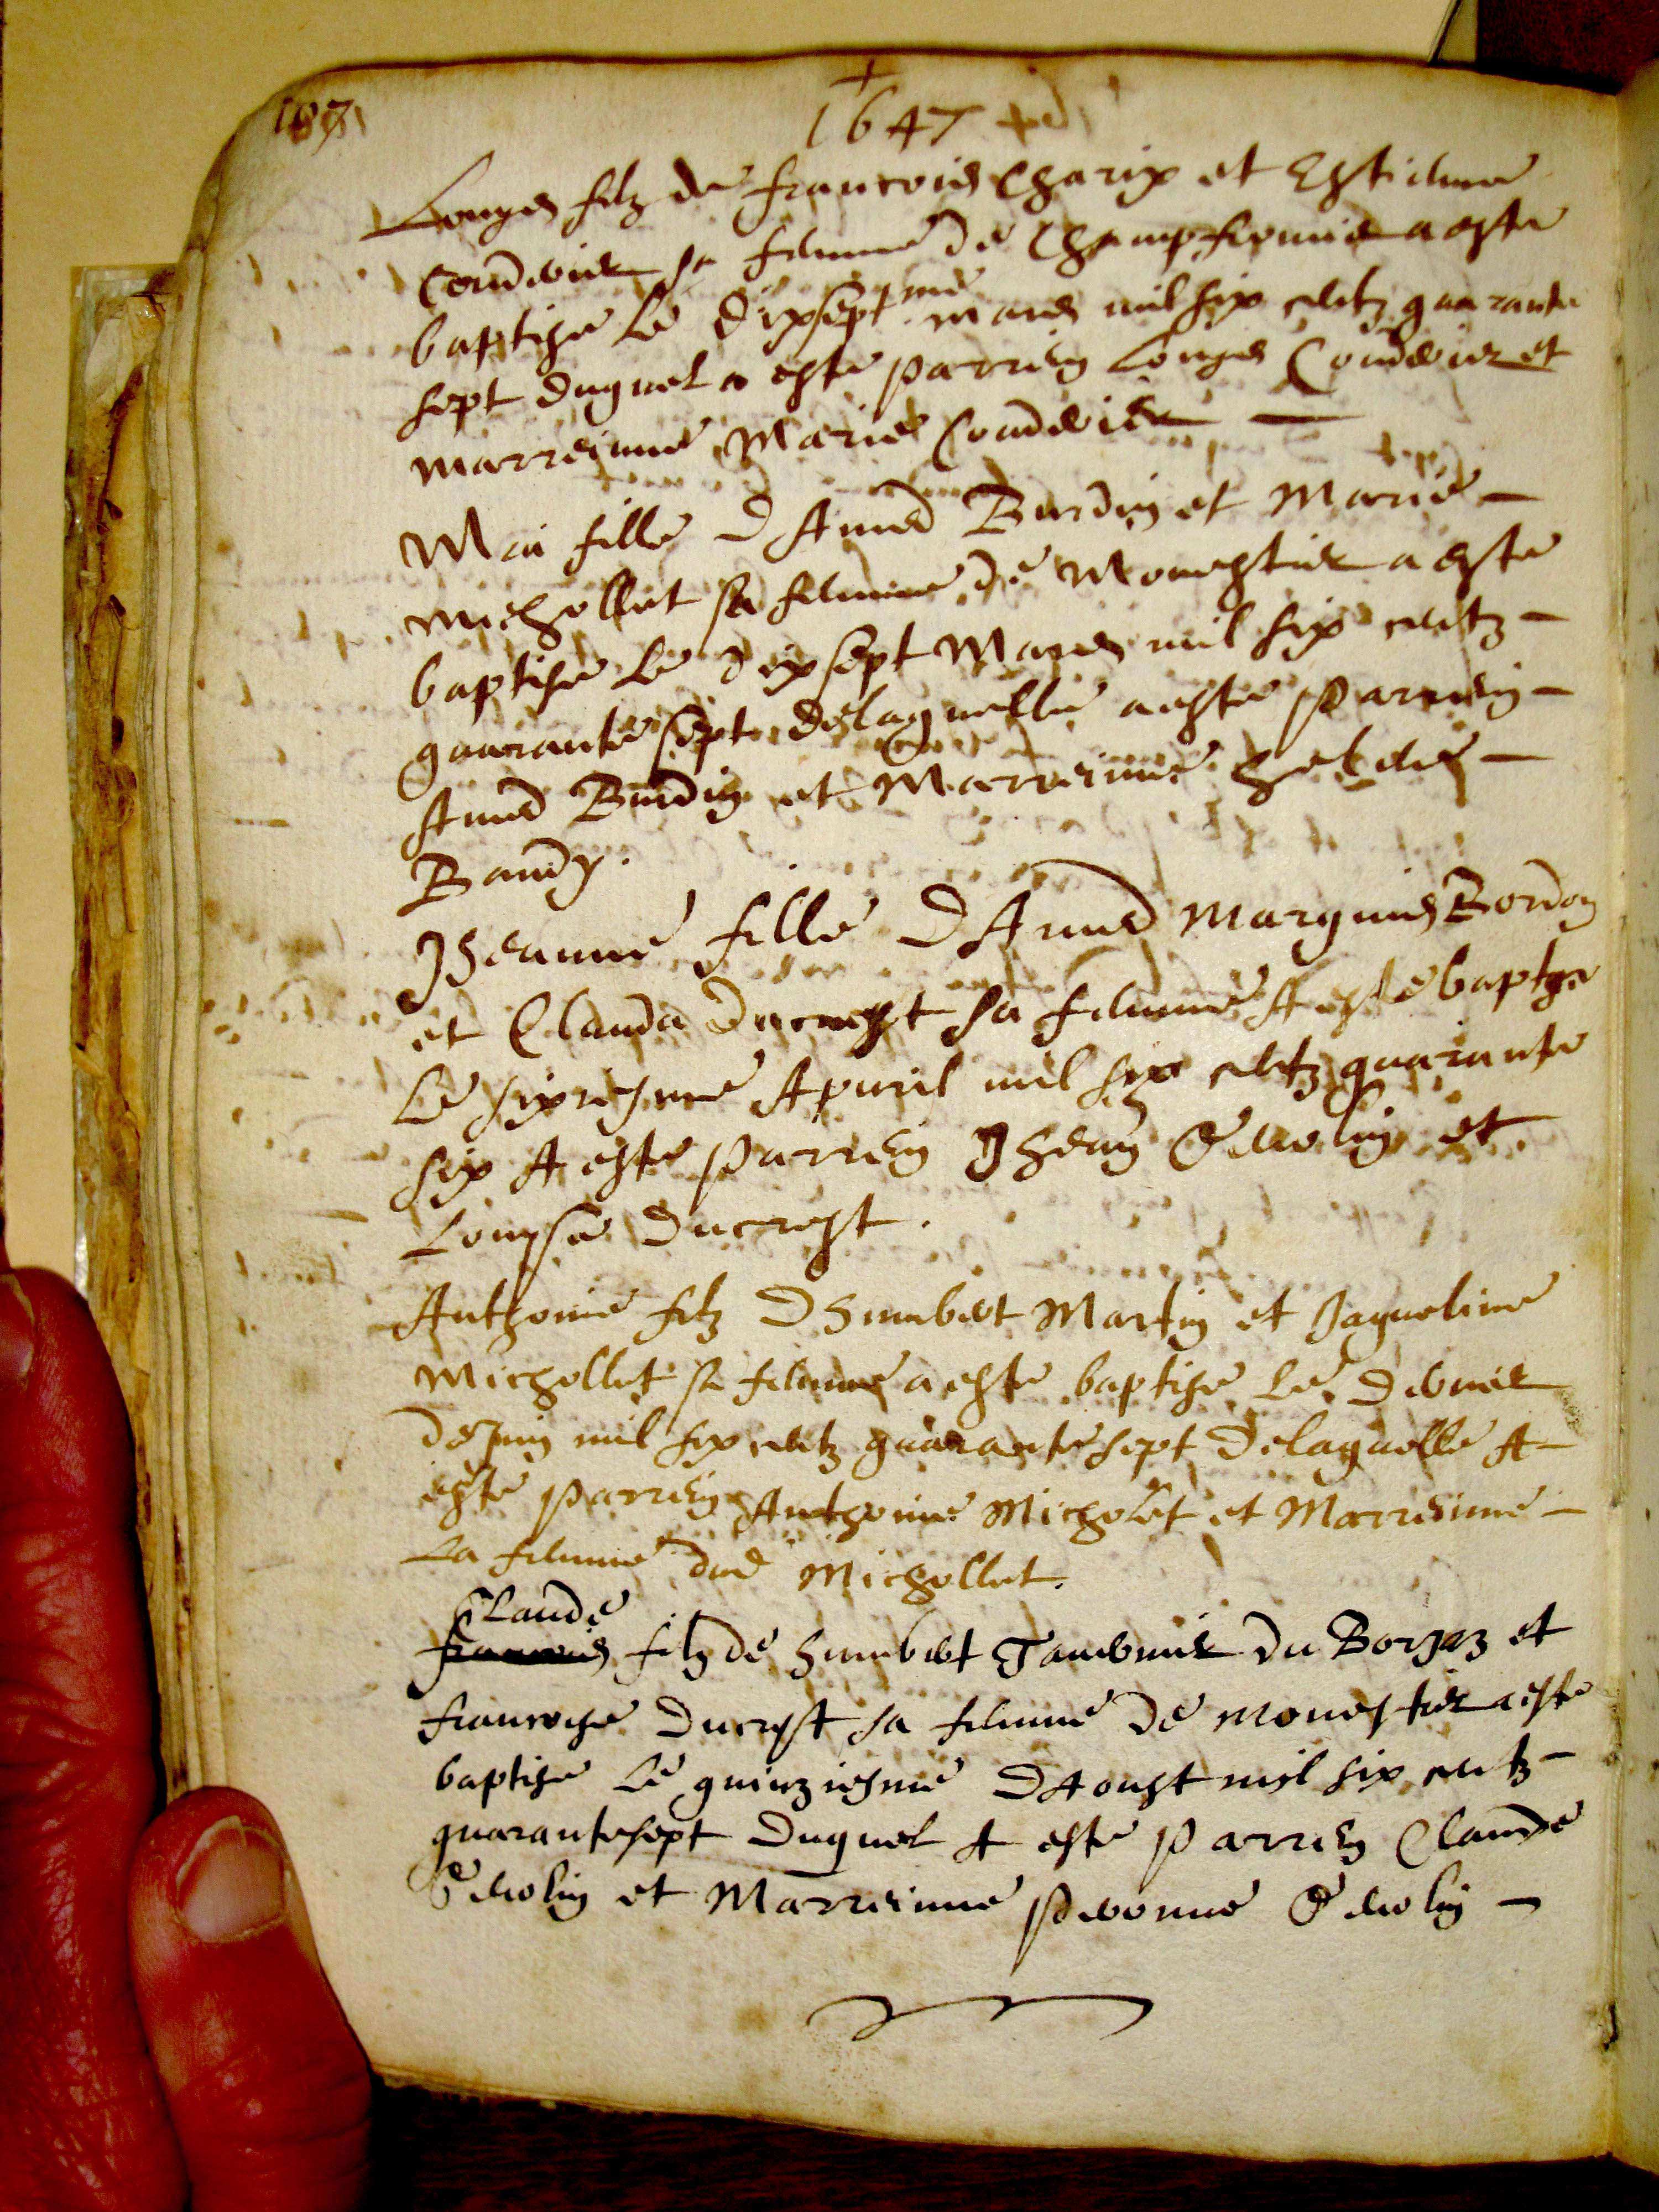 187
1647
Louys filz de francois Charix et Estienne
sa femme de Champfromier a este
baptise le dixsept me mars mil six centz quarante
sept duquel a este parrein Louys et
marreinne Marie
Mia fille d Amed Burdin et Marie -
michollet sa femme de Monestier a este
baptise le dixsept Mars mil six centz -
quarante sept de laquelle a este parrein -
Amed Burdin et Marreinne -
Baudy.
Jheanne fille d Amed Marquis Bordon
et Clauda Ducrest sa femme A este baptise
Le sixiesme Apvril mil six centz quarante
six A este parrein Jhean Genolin et
Louyse Ducrest.
Anthoine filz d humbert Martin et Jaqueline
Michollet sa femme a este baptise le dernier
de Juin mil six centz quarante sept de laquelle A -
este parrein Anthoine Micholet et Marreinne -
La femme dud Michollet.
Claude
francois filz de humbert Tavernier du Borgez et
francoyse Ducrest sa femme de monestier a este
baptise le quinziesme d Aoust mil six centz -
quarante sept duquel A este parrein Claude
Genolin et Marreinne pernonne Genolin -